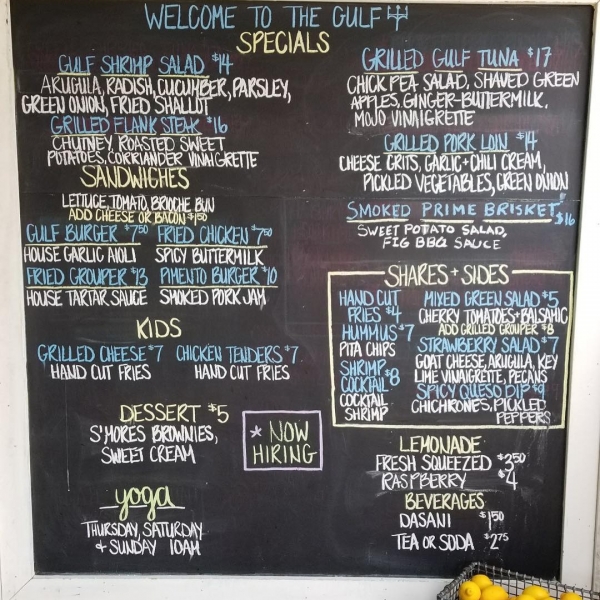 WELCOME TO THE GULF
SPECIALS
GULF SHRIMP SALAD $14
ARUGULA, RADISH, CUCUMBER, PARSLEY,
GREEN ONION, FRIED SHALLOT
GRILLED FLANK STEAK $16
CHUTNEY, ROASTED SWEET
POTATOES, CORRIANDER VINAIGRETTE
GRILLED GULF TUNA $17
CHICK PEA SALAD, SHAVED GREEN
APPLES, GINGER-BUTTERMILK,
MOJO VINAIGRETTE
GRILLED PORK LOIN $14
CHEESE GRITS, GARLIC+CHILI CREAM,
PICKLED VEGETABLES, GREEN ONION
SMOKED PRIME BRISKET $16
SWEET POTATO SALAD,
FIG BBQ SAUCE
SANDWICHES
LETTUCE, TOMATO, BRIOCHE BUN
ADD CHEESE OR BACON $1.50
GULF BURGER $7.50 FRIED CHICKEN $7.50
HOUSE GARLIC AIOLI SPICY BUTTERMILK
FRIED GROUPER $13 PIMENTO BURGER $10
HOUSE TARTAR SAUCE SMOKED PORK JAM
KIDS
GRILLED CHEESE $7 CHICKEN TENDERS $7
HAND CUT FRIES HAND CUT FRIES
DESSERT $5
S'MORES BROWNIES,
SWEET CREAM
* NOW
HIRING
yoga
THURSDAY, SATURDAY
+ SUNDAY 10AM
SHARES + SIDES
HAND CUT
FRIES $4
HUMMUS $7
PITA CHIPS
SHRIMP
COCKTAIL $8
COCKTAIL
SHRIMP
MIXED GREEN SALAD $5
CHERRY TOMATOES+BALSAMIC
ADD GRILLED GROUPER $8
STRAWBERRY SALAD $7
GOAT CHEESE, ARUGULA, KEY
LIME VINAIGRETTE, PECANS
SPICY QUESO DIP $9
CHICHIRONES, PICKLED
PEPPERS
LEMONADE
FRESH SQUEEZED $3.50
RASPBERRY $4
BEVERAGES
DASANI $1.50
TEA OR SODA $2.75